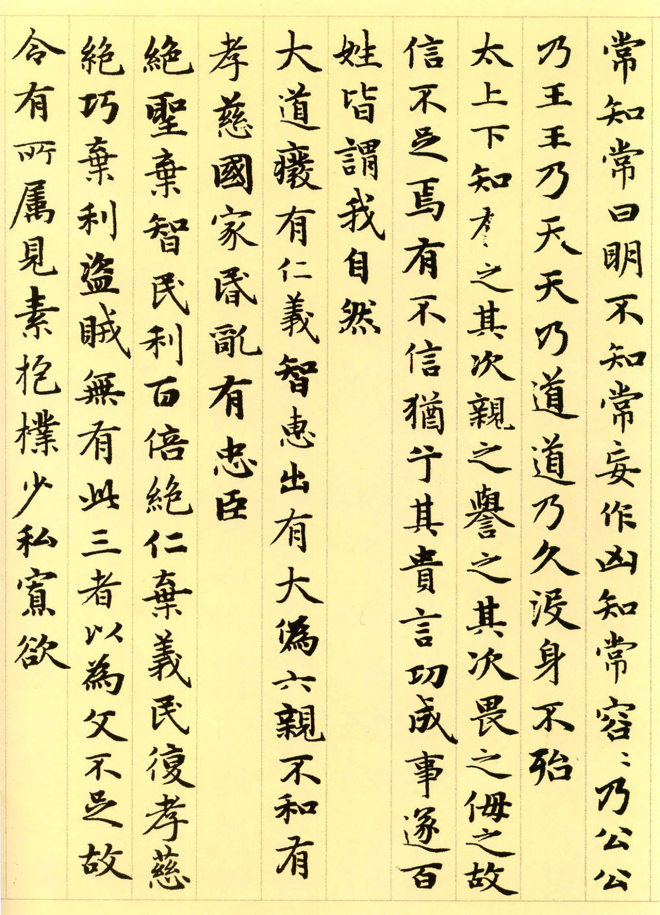 常知常曰明不知常妄作凶知常容〻乃公公
乃王王乃天天乃道道乃久沒身不殆
太上下知有之其次親之譽之其次畏之侮之故
信不足焉有不信猶兮其貴言功成事遂百
姓皆謂我自然
大道癈有仁義智惠出有大偽六親不和有
孝慈國家昬亂有忠臣
絕聖棄智民利百倍絕仁棄義民復孝慈
絕巧棄利盜賊無有此三者以為文不足故
令有所屬見素抱樸少私寡欲